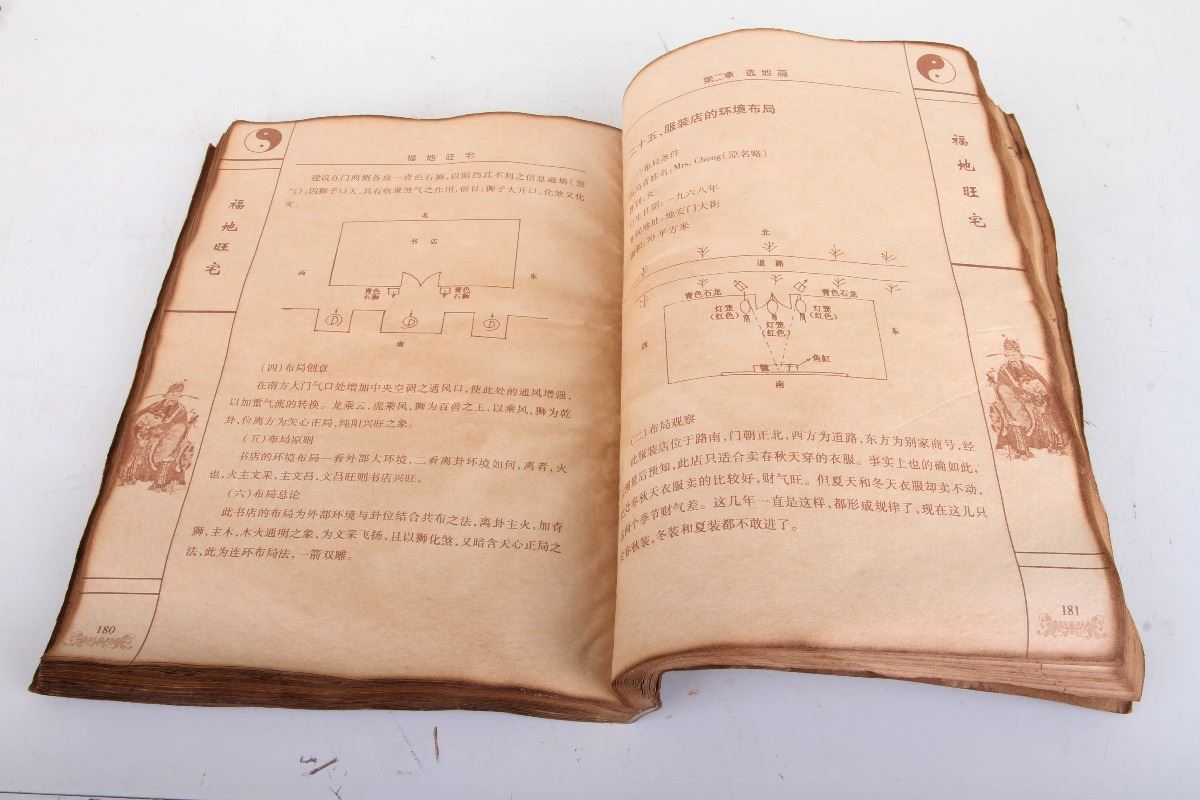 福地旺宅
福地旺宅
建议在门两侧各放一青色石狮,以阻挡其不利之信息磁场(煞
气);因狮子口大,具有收聚煞气之作用,俗曰:狮子大开口,化煞又化
灾。
北
书店
西
东
青色
石狮
青色
石狮
D
D
D
南
(四)布局创意
在南方大门气口处增加中央空调之通风口,使此处的通风增强,
以加重气流的转换。龙乘云,虎乘风,狮为百兽之王,以乘风,狮为乾
卦,位离方为天心正局,纯阳兴旺之象。
(五)布局原则
书店的环境布局一看外部大环境,二看离卦环境如何,离者,火
也,火主文采,主文昌,文昌旺则书店兴旺。
(六)布局总论
此书店的布局为外部环境与卦位结合共布之法,离卦主火,加青
狮,主木,木火通明之象,为文采飞扬,且以狮化煞,又暗含天心正局之
法,此为连环布局法,一箭双雕。
180
第二章 选地篇
福地旺宅
二十五、服装店的环境布局
布局条件
者姓名:Mrs. Chong(原名略)
性别:女
生日期:一九六八年
地址:地安门大街
面积:70 平方米
北
道路
青色石龙
青色石龙
灯笼
(红色)
灯笼
(红色)
灯笼
(红色)
西
东
镜子
鱼缸
南
(二)布局观察
此服装店位于路南,门朝正北,西方为道路,东方为别家商号,经
测最后预知,此店只适合卖春秋天穿的衣服。事实上也的确如此,
处春秋天衣服卖的比较好,财气旺。但夏天和冬天衣服却卖不动,
两个季节财气差。这几年一直是这样,都形成规律了,现在这儿只
卖春秋装,冬装和夏装都不敢进了。
181